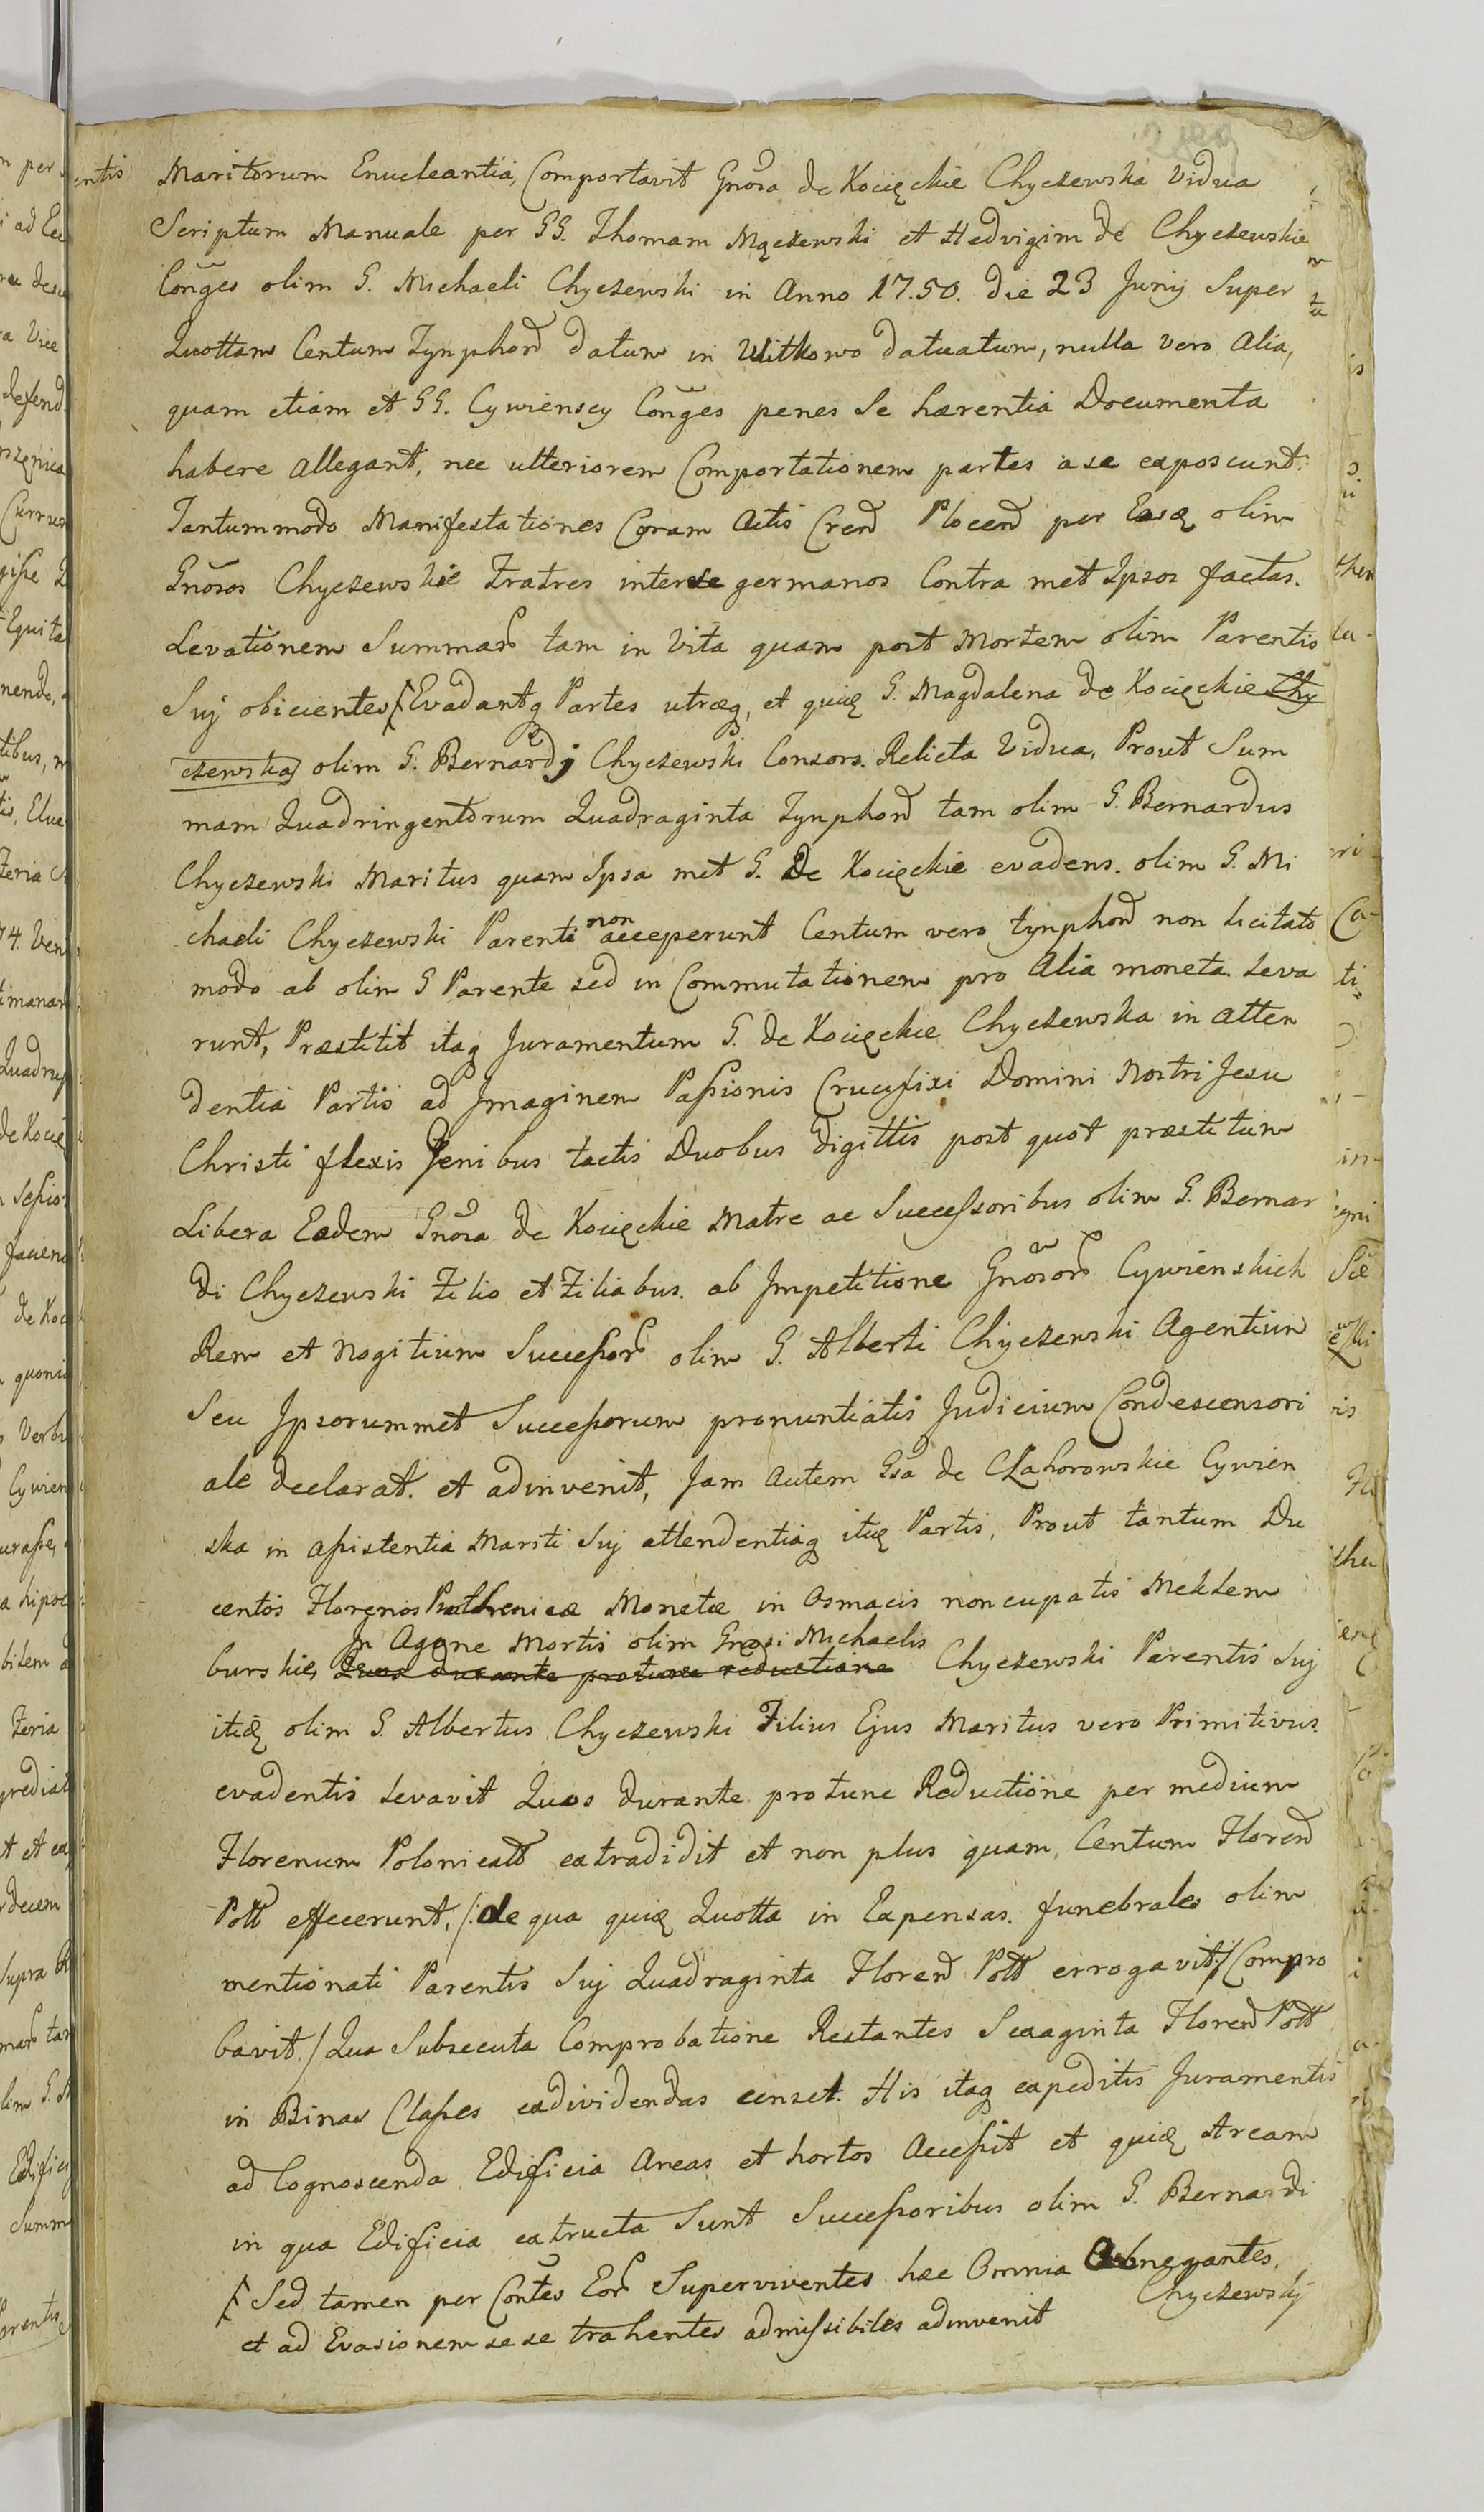 Maritorum Enucleantia, Comportavit Gnosa de Kocięckie Chyczewska Vidua
Scriptum Manuale per GG. Thomam Mączewski et Hedvigim de Chyczewskie
Conges olim G. Michaeli Chyczewski in Anno 17.50. die 23 Junij Super
Quottam Centum Tynphord datum in Witkowo datuatum, nulla vero Alia,
quam etiam et GG. Cywienscy Conges penes Se hærentia Documenta
habere allegant, nec ulteriorem Comportationem partes a se exposcunt.
Tantummodo Manifestationes Coram Actis Crend Plocend per Eosq olim
Gnosos Chyczewskie Fratres inter se germanos Contra met Ipsos factas.
Levationem Summar tam in Vita quam post Mortem olim Parentis
Suj obicientes /Evadantq Partes utræq, et quiq G. Magdalena de Kocięckie Chy
czewska olim G. Bernardj Chyczewski Consors. Relicta Vidua, Prout Sum
mam Quadringentorum Quadraginta Tynphord tam olim G. Bernardus
Chyczewski Maritus quam Ipsa met G. De Kocięckie evadens. olim G. Mi
chaeli Chyczewski Parenti non acceperunt Centum vero tynphord non licitato
modo ab olim G Parente sed in Commutationem pro Alia moneta. Leva
runt, Præstitit itaq Juramentum G. de Kocięckie Chyczewska in atten
dentia Partis ad Imaginem Passionis Crucifixi Domini Nostri Jesu
Christi flexis Jenibus tactis Duobus digittis post quot præstitum
Libera Eadem Gnosa de Kocięckie Matre ac Successoribus olim G. Bernar
di Chyczewski Filio et Filiabus. ab Impetitione Gnosor Cywienskich
Rem et Nogitium Successor olim G. Alberti Chyczewski Agentium
Seu Ipsorummet Successorum pronuntiatis Judicium Condescensori
ale declarat. et adinvenit, Jam autem Gsa de Czahorowskie Cywien
ska in assistentia Mariti Suj attendentiaq itiq Partis, Prout tantum Du
centos Florenos Pruthenicæ Monetæ in Osmacis noncupatis Meklem
In Agone Mortis olim Gnosi Michaelis
burskie, Quos durante protunc reductione Chyczewski Parentis Suj
itiq olim G. Albertus Chyczewski Filius Ejus Maritus vero Primitivus
evadentis Levavit Quos durante protunc Reductione per medium
Florenum Polonicatt extradidit et non plus quam, Centum Florend
Pott effecerunt, /:de qua quiq Quotta in Expensas. funebrales olim
mentionati Parentis Suj Quadraginta Florend Pott errogavit:/ Compro
bavit./ Qua Subsecuta Comprobatione Restantes Sexaginta Florend Pott
in Binas Classes exdividendas censet. His itaq expeditis Juramentis
ad Cognoscenda Edificia Areas et hortos Accessit et quiq Aream
in qua Edificia extructa Sunt Successoribus olim G. Bernardi
/ Sed tamen per Contes Eor Superviventes hæc Omnia Abnegantes.
Chyczewskj
et ad Evasionem se se trahentes admissibiles adinvenit